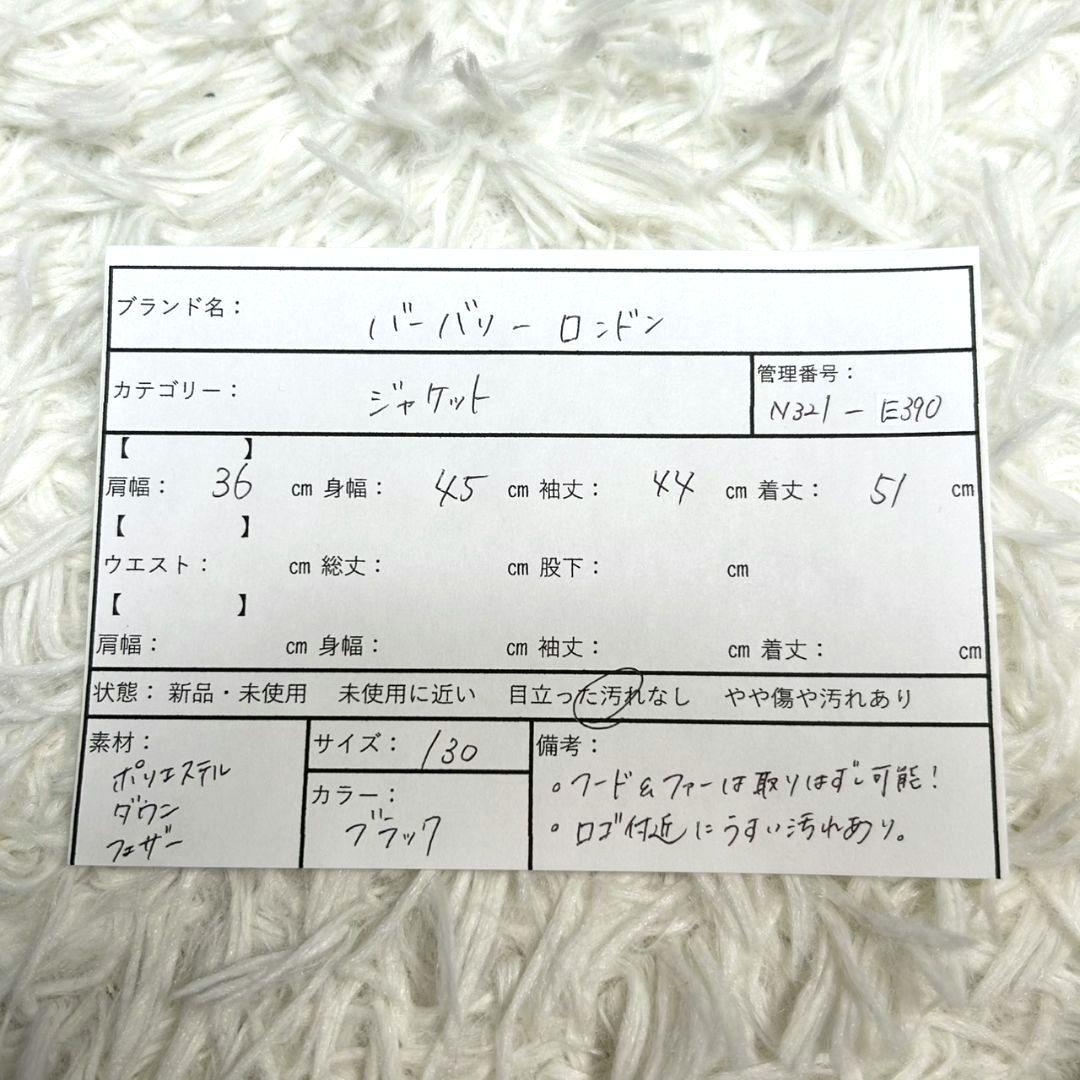 ブランド名： バーバリーロンドン
カテゴリー： ジャケット
管理番号：
N321-E390
【 】
肩幅： 36 cm 身幅： 45 cm 袖丈： 44 cm 着丈： 51 cm
【 】
ウエスト： cm 総丈： cm 股下： cm
【 】
肩幅： cm 身幅： cm 袖丈： cm 着丈： cm
状態： 新品・未使用 未使用に近い 目立った汚れなし やや傷や汚れあり
素材：
ポリエステル
ダウン
フェザー
サイズ： 130
カラー：
ブラック
備考：
• フード&ファーは取りはずし可能！
• ロゴ付近にうすい汚れあり。